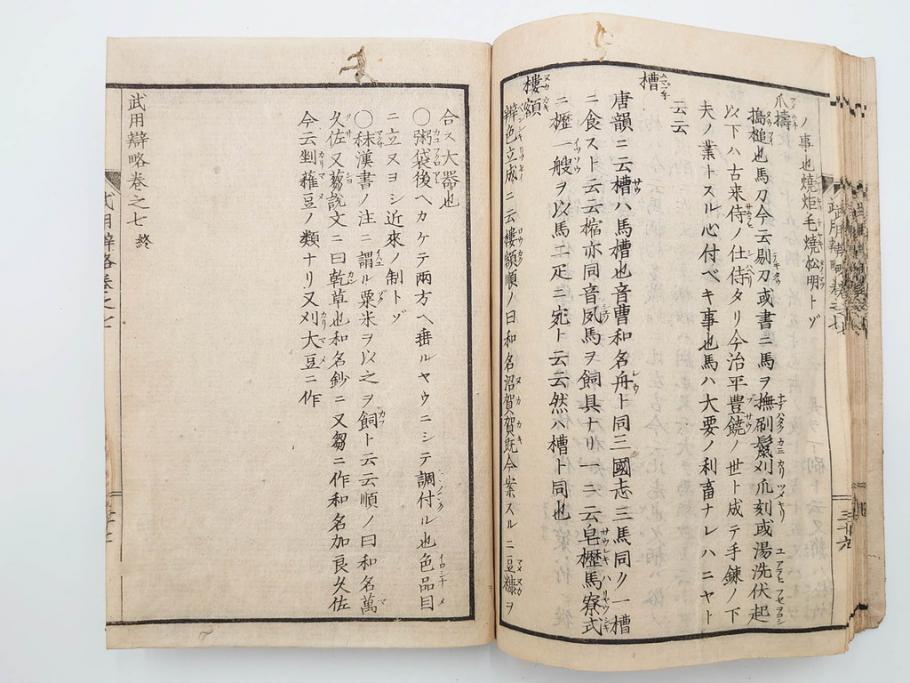 ノ事也燒炬毛燒松明トゾ
爪檮
搗槌也馬刀今云剔刀或書ニ馬ヲ撫刷鬃刈爪刻或湯洗伏起
以下ハ古来侍ノ仕侍タリ今治平豊饒ノ世ト成テ手錬ノ下
夫ノ業トスル心付ベキ事也馬ハ大要ノ利畜ナレハニヤト
云云
槽
唐韻ニ云槽ハ馬槽也音曹和名舟ト同三國志三馬同ク一槽
ニ食スト云云棺亦同音凨馬ヲ飼具ナリ一ニ云皂櫪馬寮式
ニ櫪一艘ヲ以馬二疋ニ宛ト云云然ハ槽ト同也
樓額
辨色立成ニ云樓額順ノ曰和名沼賀賀既今案スルニ豆糠ヲ
合ス大器也
〇粥袋後ヘカケテ兩方ヘ垂ルヤウニシテ調付ル也色品目
ニ立又ヨシ近來ノ制トゾ
〇秣漢書ノ注ニ謂ル粟米ヲ以之ヲ飼ト云云順ノ曰和名萬
久佐又蒭説文ニ曰乾草也和名鈔ニ又芻ニ作和名加良久佐
今云剉蕹豆ノ類ナリ又刈大豆ニ作
武用辯略卷之七 終
武用辯略卷之七
三十六